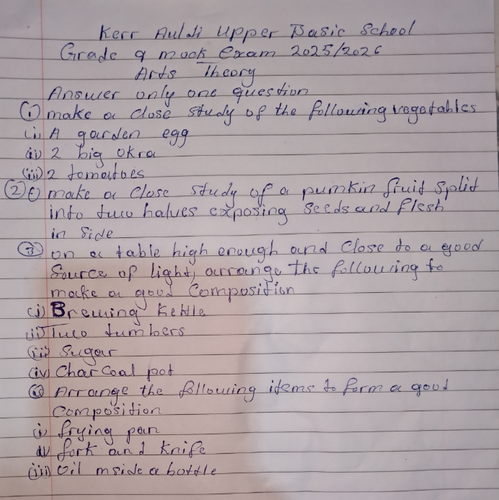 Kerr Auldi Upper Basic School
Grade 9 mock Exam 2025/2026
Arts Theory
Answer only one question
(1) make a close study of the following vegetables
(i) A garden egg
(ii) 2 big okra
(iii) 2 tomatoes
(2) make a close study of a pumkin fruit split
into two halves exposing seeds and flesh
in side
on a table high enough and close to a good
source of light, arrange the following to
make a good composition
(i) Brewing kettle
(ii) Two tumbers
(iii) Sugar
(iv) Charcoal pot
Arrange the following items to form a good
composition
(i) frying pan
(ii) fork and knife
(iii) oil inside a bottle